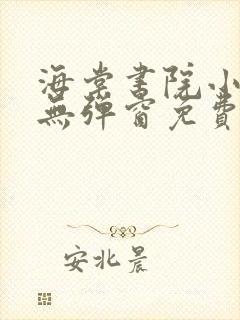 海棠書院小
無彈窗免費
安北晨